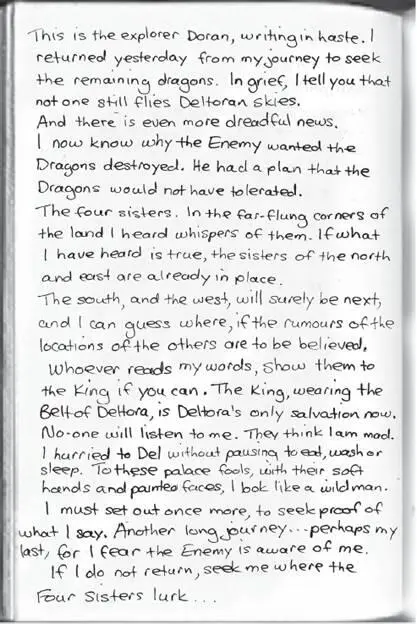 This is the explorer Doran, writing in haste. I
returned yesterday from my journey to seek
the remaining dragons. In grief, I tell you that
not one still flies Deltoran skies.
And there is even more dreadful news.
I now know why the Enemy wanted the
Dragons destroyed. He had a plan that the
Dragons would not have tolerated.
The four sisters. In the far-flung corners of
the land I heard whispers of them. If what
I have heard is true, the sisters of the north
and east are already in place.
The south, and the west, will surely be next,
and I can guess where, if the rumours of the
locations of the others are to be believed.
Whoever reads my words, show them to
the King if you can. The King, wearing the
Belt of Deltora, is Deltora's only salvation now.
No-one will listen to me. They think I am mad.
I hurried to Del without pausing to eat, wash or
sleep. To these palace fools, with their soft
hands and painted faces, I look like a wild man.
I must set out once more, to seek proof of
what I say. Another long journey... perhaps my
last, for I fear the Enemy is aware of me.
If I do not return, seek me where the
Four Sisters lurk...